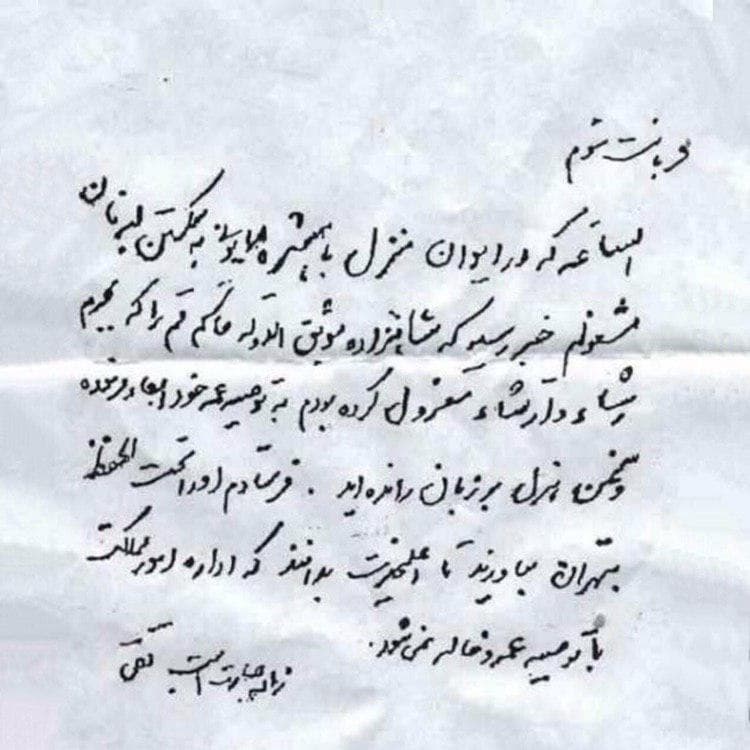 قربانت شوم
الساعه که در ایوان منزل با همشیره همایونی به شکستن لبه نان
مشغولم خبر رسید که شاهزاده موثق الدوله حاکم قم را که به جرم
رشاء و ارتشاء معزول کرده بودم به توصیه عمه خود ابقاء فرموده
و سخن هزل بر زبان رانده‌اید. فرستادم او را تحت الحفظ
بتهران بیاورند تا اعلیحضرت بدانند که اداره امور مملکت
با توصیه عمه و خاله نمی‌شود.
زیاده جسارت است تقی